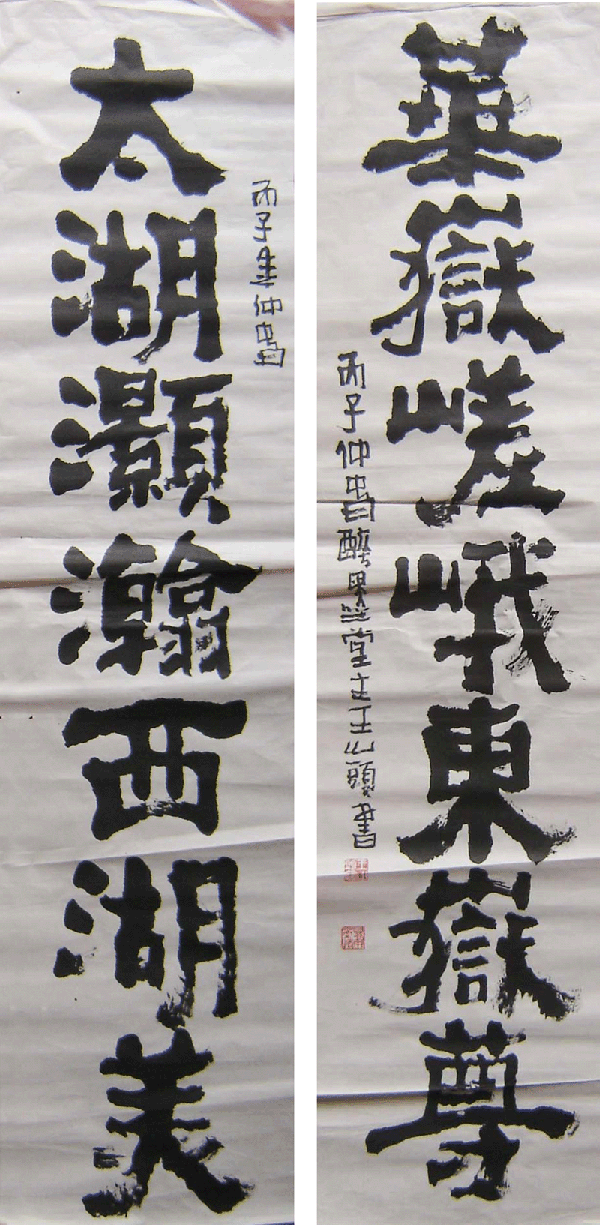 華嶽嵯峨東嶽尊
丙子仲書醉墨堂主王山頭書
太湖灝瀚西湖美
丙子中仲書